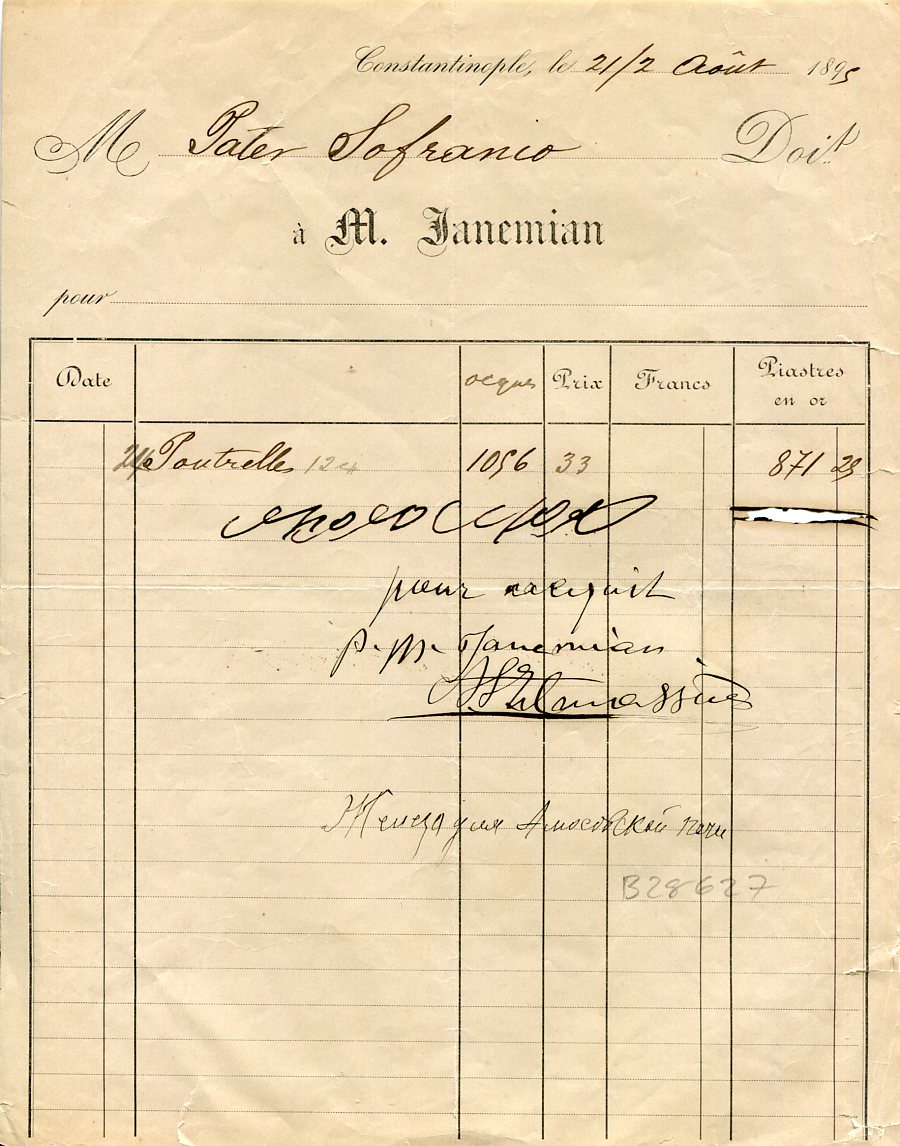 Constantinople, le 21/2 Août 1895
M Pater Sofranio Doit
à M. Janemian
pour
Date ocques Prix Francs Piastres en or
24 Poutrelles 1056 33 871 23
pour acquit
p. M. Janemian
Железо для Амосовской печи
B28627